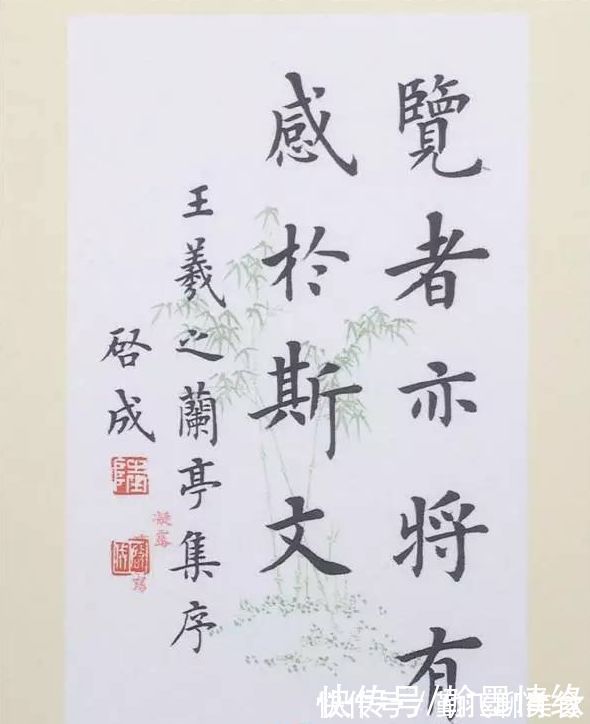 覽者亦將有
感於斯文
王羲之蘭亭集序
啓成
凝露
快传号/翰墨情缘